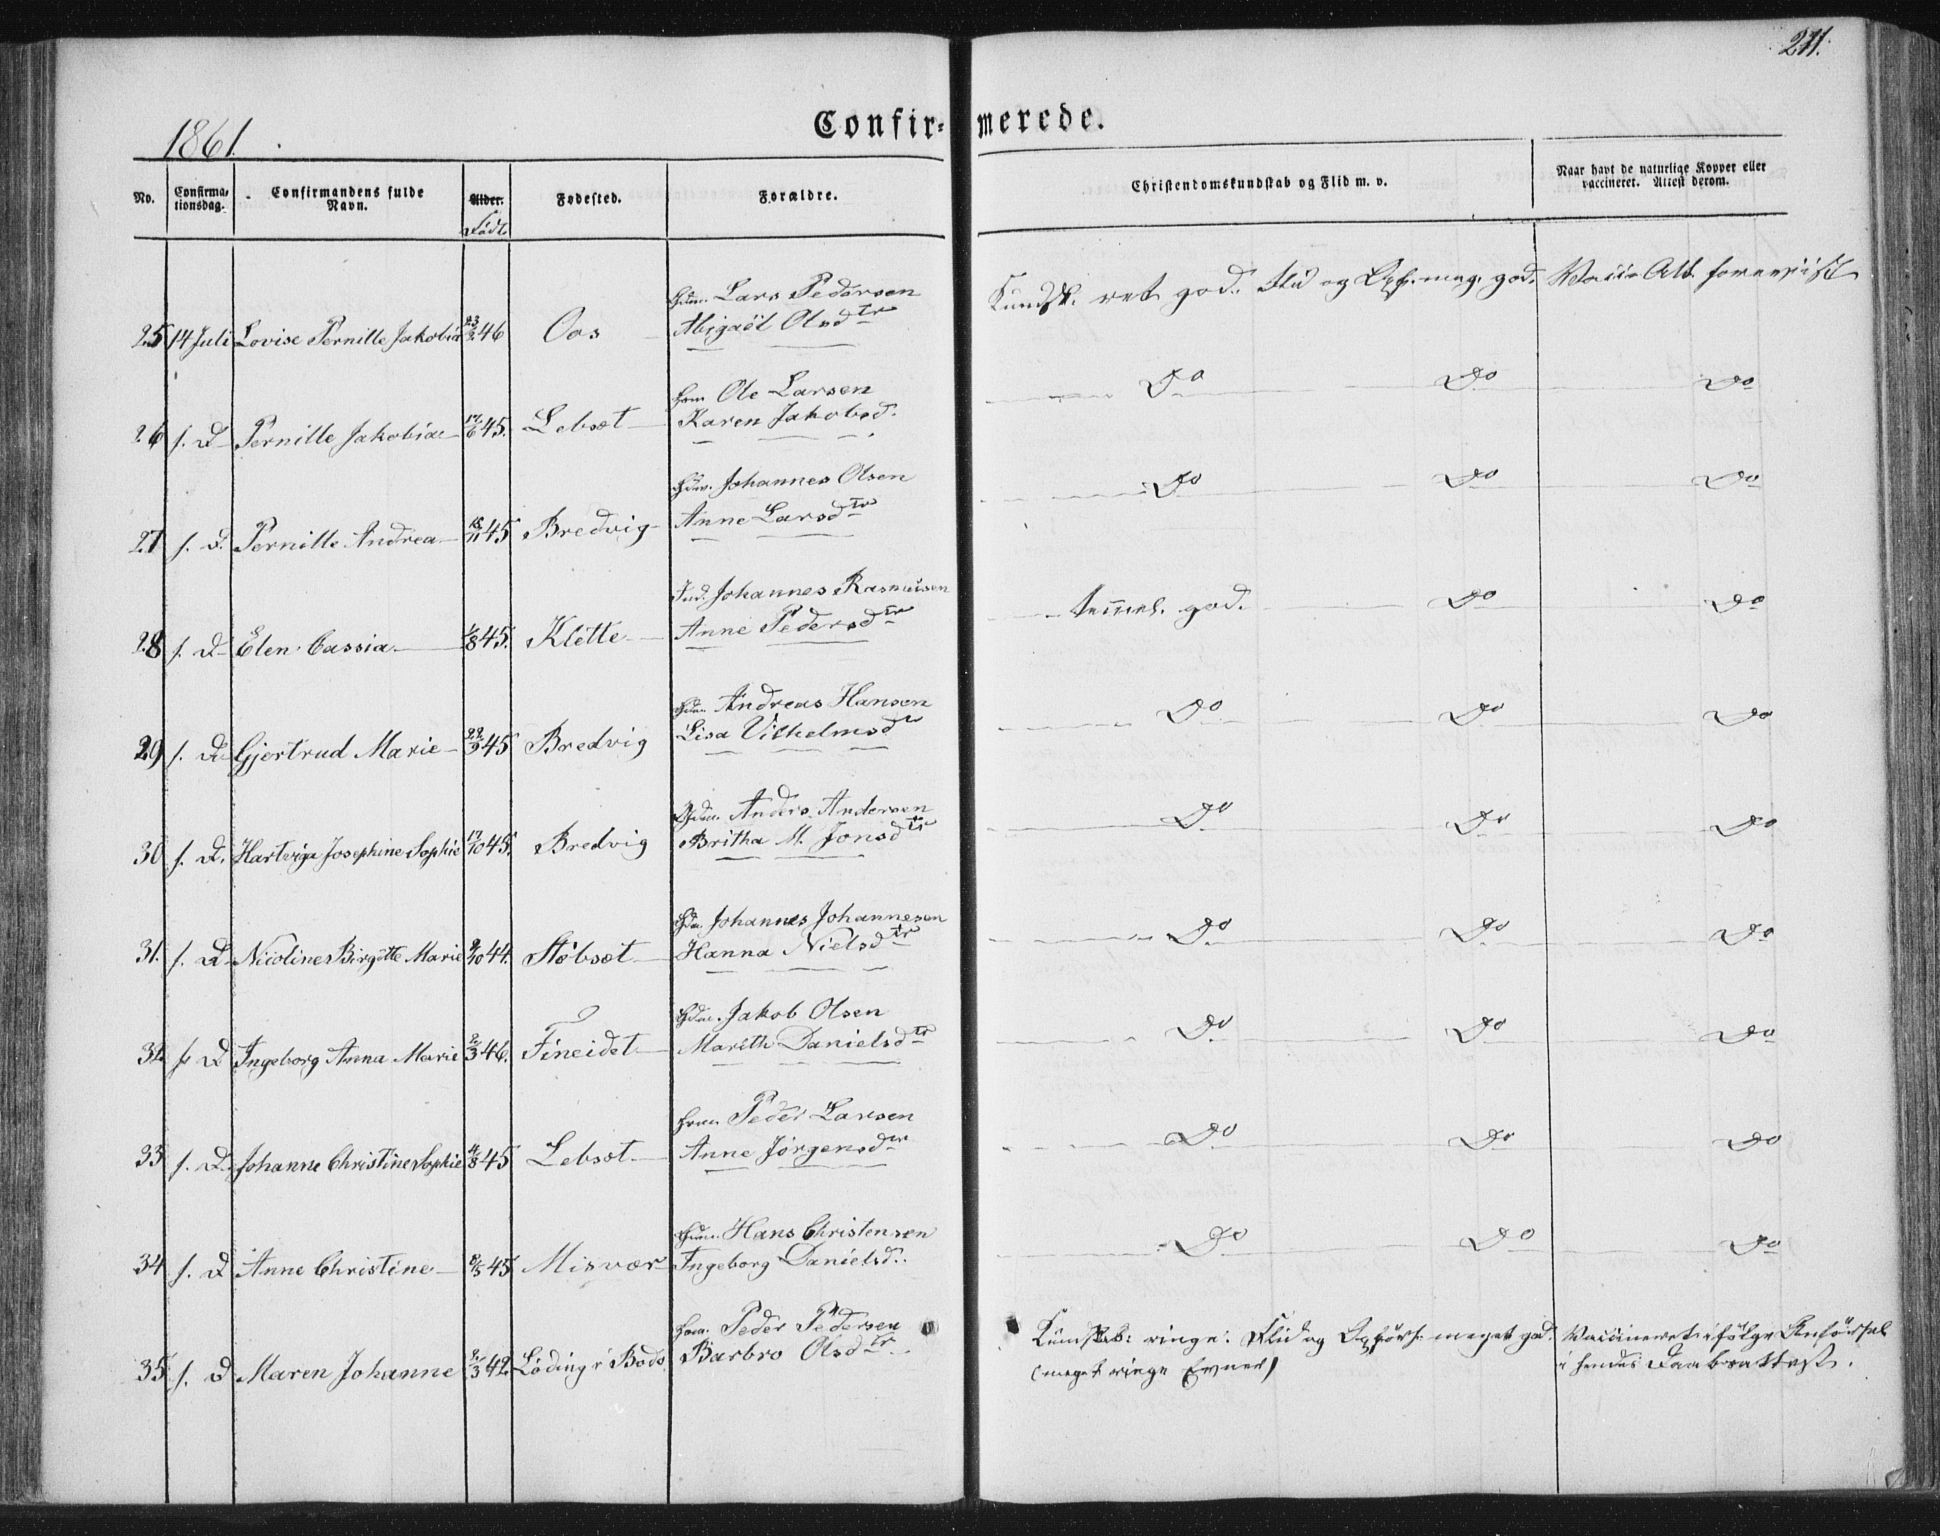 211.
1861.
Confir-merede.
No.
Confirma-
tionsdag.
Confirmandens fulde
Navn.
Alder.
Födt
Fødested.
Forældre.
Christendomskundskab og Flid m. v.
Naar havt de naturlige Kopper eller
vaccineret. Attest derom.
Lars Pedersen
Kundsk. ret god. Flid og Opf. meg. god. Vacc. Att. foreviist
25 14 Juli Lovise Pernille Jakobia 23/2 46 Oos Abigaël Olsdtr
Ole Larsen
Do Do Do
26 s. D Pernille Jakobia 17/6 45. Lebsæt Karen Jakobsd.
Johannes Olsen
Do Do Do
27 s. D. Pernille Andrea 18/11 45 Bredvig Anne Larsdtr
Ind. Johannes Rasmusen
temmel. god. Do Do
28 s. D Elen Cassia 1/8 45. Klette Anne Pedersdtr
Andreas Hansen
Do Do Do
29 s. D Gjertrud Marie 22/9 45 Bredvig Lisa Vilhelmsdtr
Anders Andersen
Do Do Do
30 s. D. Hartviga Josephine Sophie 17/10 45. Bredvig Britha M. Jonsdtr
Johannes Johannesen
Do Do Do
31. s. D Nicoline Birgitte Marie 9/10 44. Støbset Hanna Nielsdtr
Jakob Olsen
Do Do Do
32 s. D Ingeborg Anna Marie 2/3 46. Fineidet Marith Danielsdtr
Peder Larsen
Do Do Do
33 s. D. Johanne Christine Sophie 4/8 45 Lebsæt Anne Jörgensdtr
Hans Christensen
Do Do Do
34 s. D Anne Christine 8/5 45 Misvær Ingeborg Danielsd.
Peder Pedersen
Kundskab: ringe. Flid og Opförs. meget god. Vaccineret ifölge Anförsel
35. s. D Maren Johanne 2/3 42. Löding i Bodö Barbro Olsdtr
(meget ringe Evner) i hendes Daabsattest.